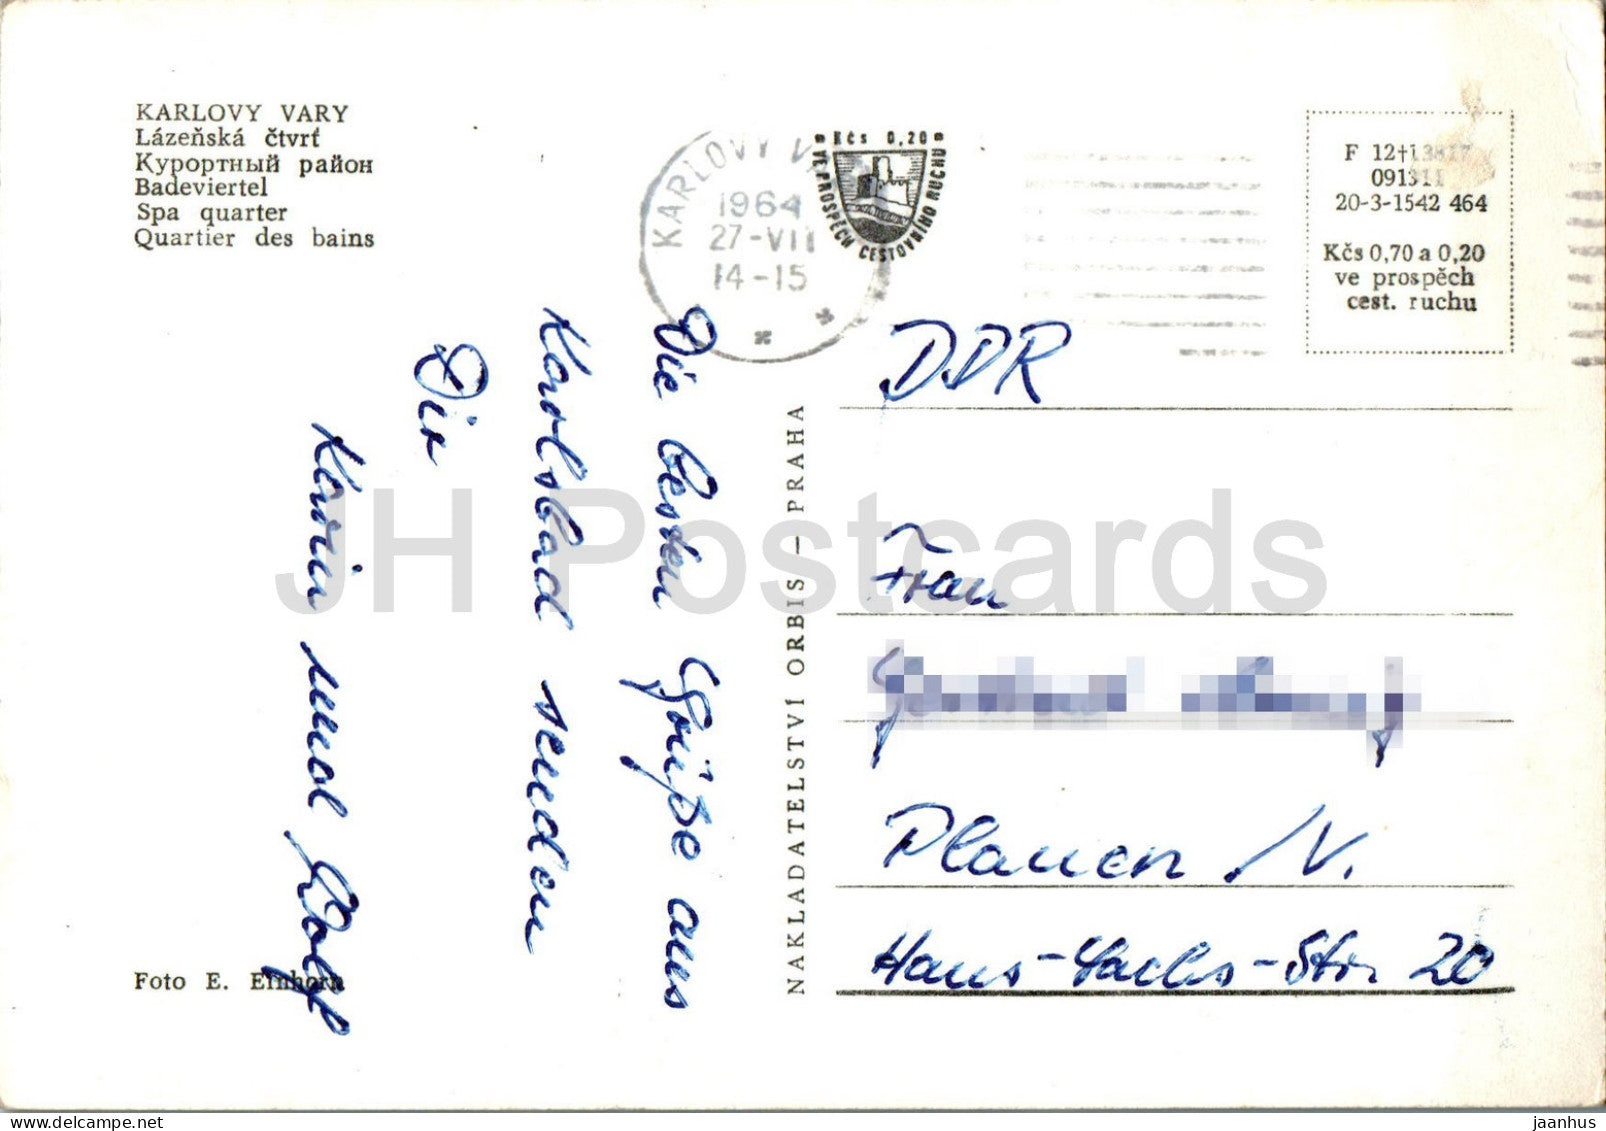 KARLOVY VARY
Lázeňská čtvrť
Курортный район
Badeviertel
Spa quarter
Quartier des bains
KARLOVY
1964
27-VII
14-15
Kčs 0,20
VE PROSPĚCH CESTOVNÍHO RUCHU
F 12
091311
20-3-1542 464
Kčs 0,70 a 0,20
ve prospěch
cest. ruchu
Die besten Grüße aus
Karlsbad senden
Dir
Karin und Rolf
NAKLADATELSTVÍ ORBIS — PRAHA
DDR
Frau
Plauen /V.
Hans-Sachs-Str. 20
Foto E. Einhorn
JH Postcards
jaanhus